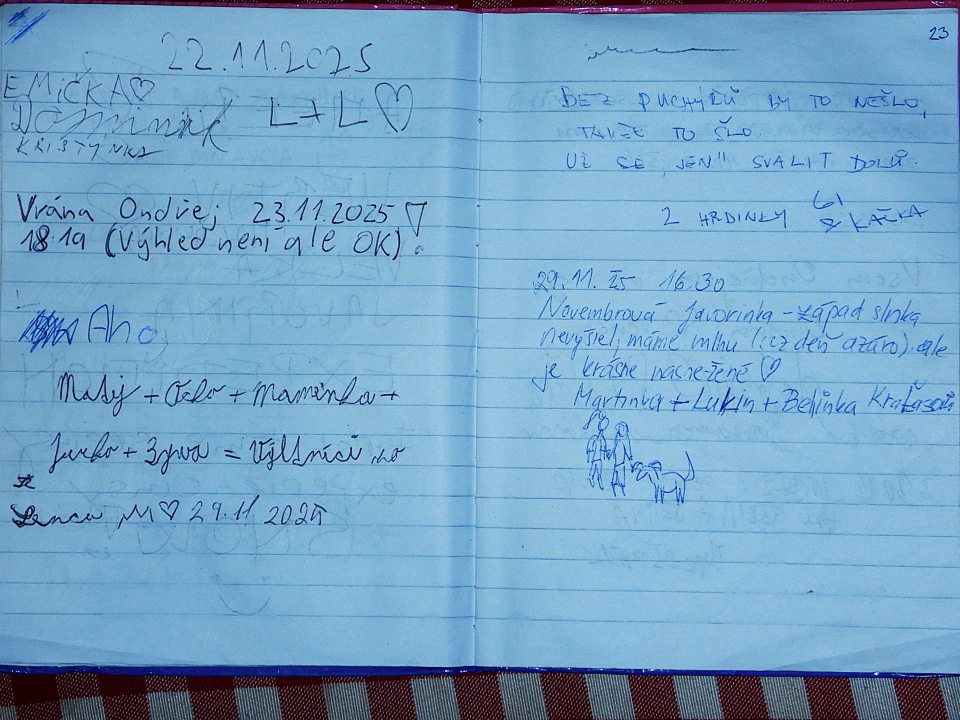 22.11.2025
EMIČKA♡
Dominik L+L ♡
KRISTÝNKA
Vrána Ondřej 23.11.2025
18:19 (Výhled není ale OK)!
Aho
Matěj + + Maminka +
+ = Výletníci
Lenca M♡ 29.11 2025
23
BEZ PUCHÝŘŮ BY TO NEŠLO,
TAKŽE TO ŠLO.
UŽ SE "JEN" SVALIT DOLŮ.
2 HRDINKY & KAČKA
29.11.25 16.30
Novembrová Javorinka - západ slnka
nevyšiel, máme mlhu (icz deň azúro) ale
je krásne nasnežené ♡
Martinka + Lukin + Belinka